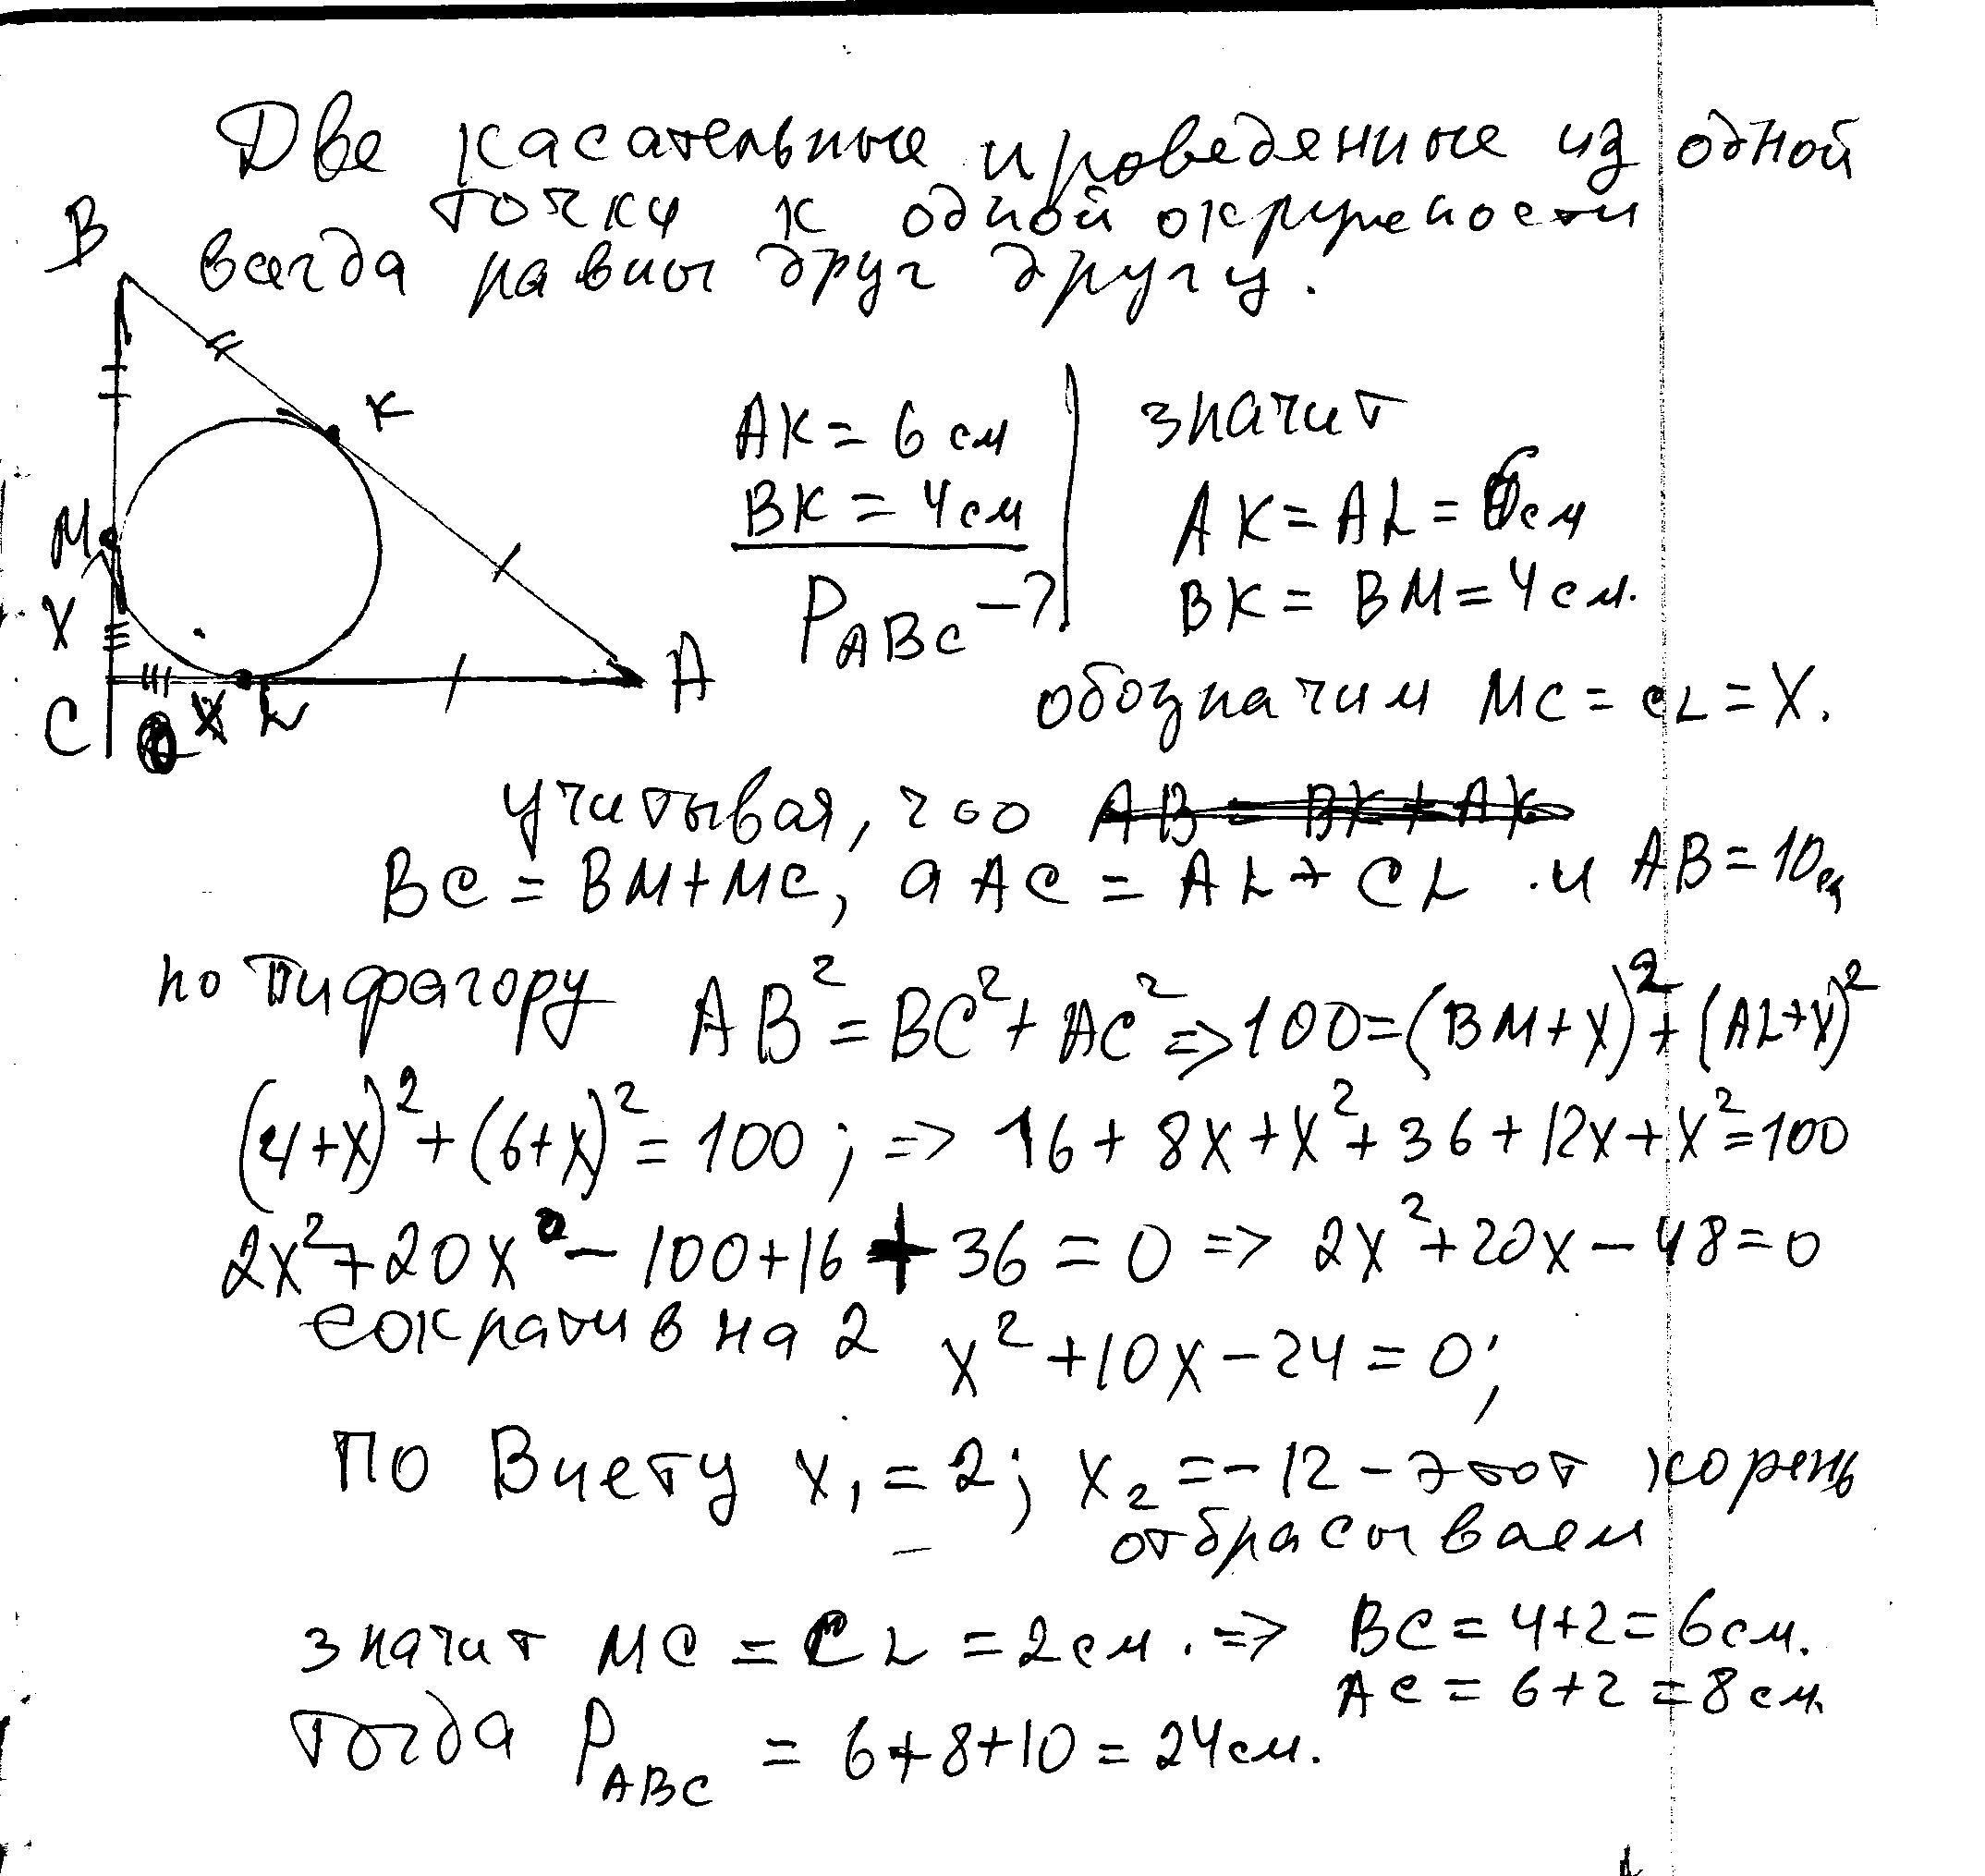 Две касательные проведянные из одной
точки к одной окружности
всегда равны друг другу.
B
K
M
X
C
X
L
A
AK = 6 см
BK = 4 см
P ABC - ?
значит
AK = AL = 6 см
BK = BM = 4 см.
обозначим MC = CL = X.
учитывая, что AB = BK + AK
BC = BM + MC, а AC = AL + CL и AB = 10 см
по Пифагору AB² = BC² + AC² => 100 = (BM + X)² + (AL + X)²
(4 + X)² + (6 + X)² = 100; => 16 + 8X + X² + 36 + 12X + X² = 100
2X² + 20X - 100 + 16 + 36 = 0 => 2X² + 20X - 48 = 0
сократив на 2 X² + 10X - 24 = 0;
по Виету X₁ = 2; X₂ = -12 - этот корень
отбрасываем
значит MC = CL = 2 см. => BC = 4 + 2 = 6 см.
AC = 6 + 2 = 8 см.
тогда P ABC = 6 + 8 + 10 = 24 см.